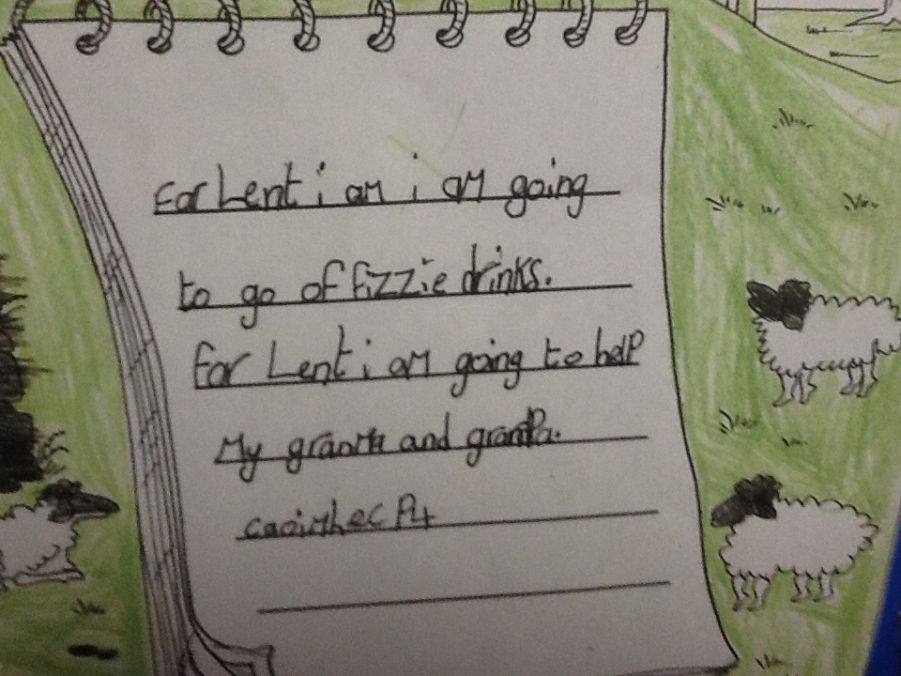 For Lent i am i am going
to go of fizzie drinks.
For Lent i am going to help
My and granPa.
P4